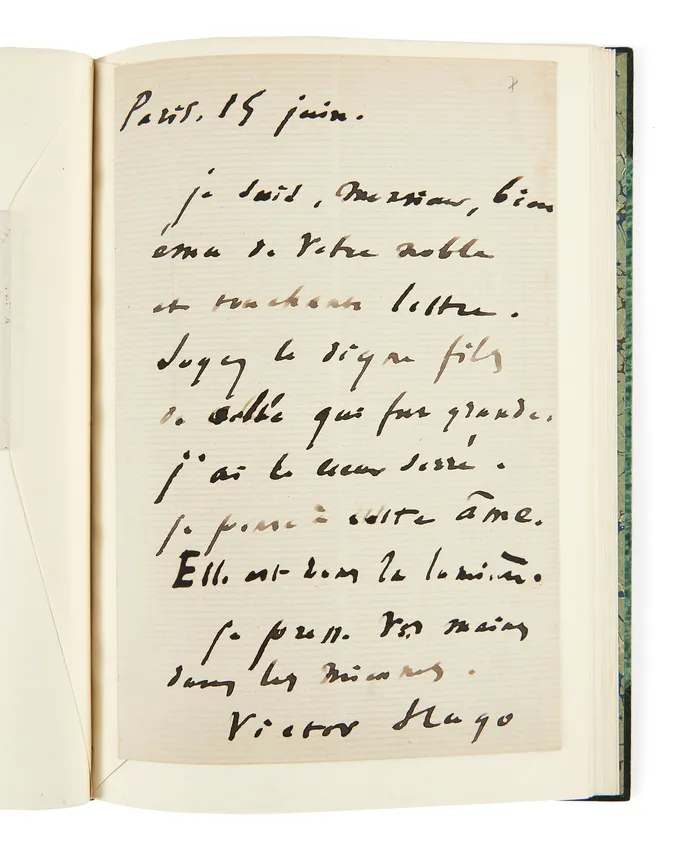 Paris. 15 juin.
je suis, Monsieur, bien
ému de votre noble
et touchante lettre.
Soyez le digne fils
de celle qui fut grande.
j'ai le cœur serré.
je pense à cette âme.
Elle est dans la lumière.
je presse vos mains
dans les miennes.
Victor Hugo